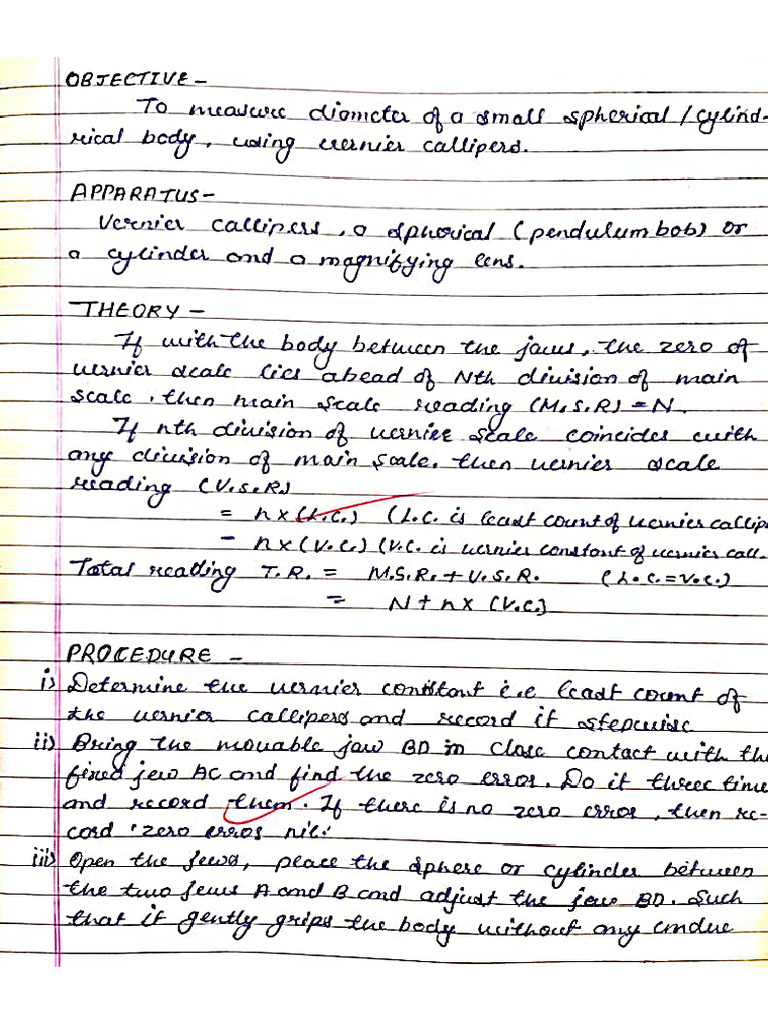 OBJECTIVE -
To measure diameter of a small spherical / cylind-
rical body, using vernier callipers.
APPARATUS -
Vernier callipers, a spherical (pendulum bob) or
a cylinder and a magnifying lens.
THEORY -
If with the body between the jaws, the zero of
vernier scale lies ahead of Nth division of main
scale, then main scale reading (M.S.R) = N.
If nth division of vernier scale coincides with
any division of main scale, then vernier scale
reading (V.S.R)
= n x (L.C.) (L.C. is least count of vernier callip
= n x (V.C.) (V.C. is vernier constant of vernier call.
Total reading T.R. = M.S.R. + V.S.R. (L.C. = V.C.)
= N + n x (V.C.)
PROCEDURE -
i) Determine the vernier constant i.e least count of
the vernier callipers and record it stepwise
ii) Bring the movable jaw BD in close contact with the
fixed jew AC and find the zero error. Do it three time
and record them. If there is no zero error, then re-
cord 'zero error nil'
iii) Open the jews, place the sphere or cylinder between
the two jews A and B and adjust the jew BD. Such
that it gently grips the body without any undue